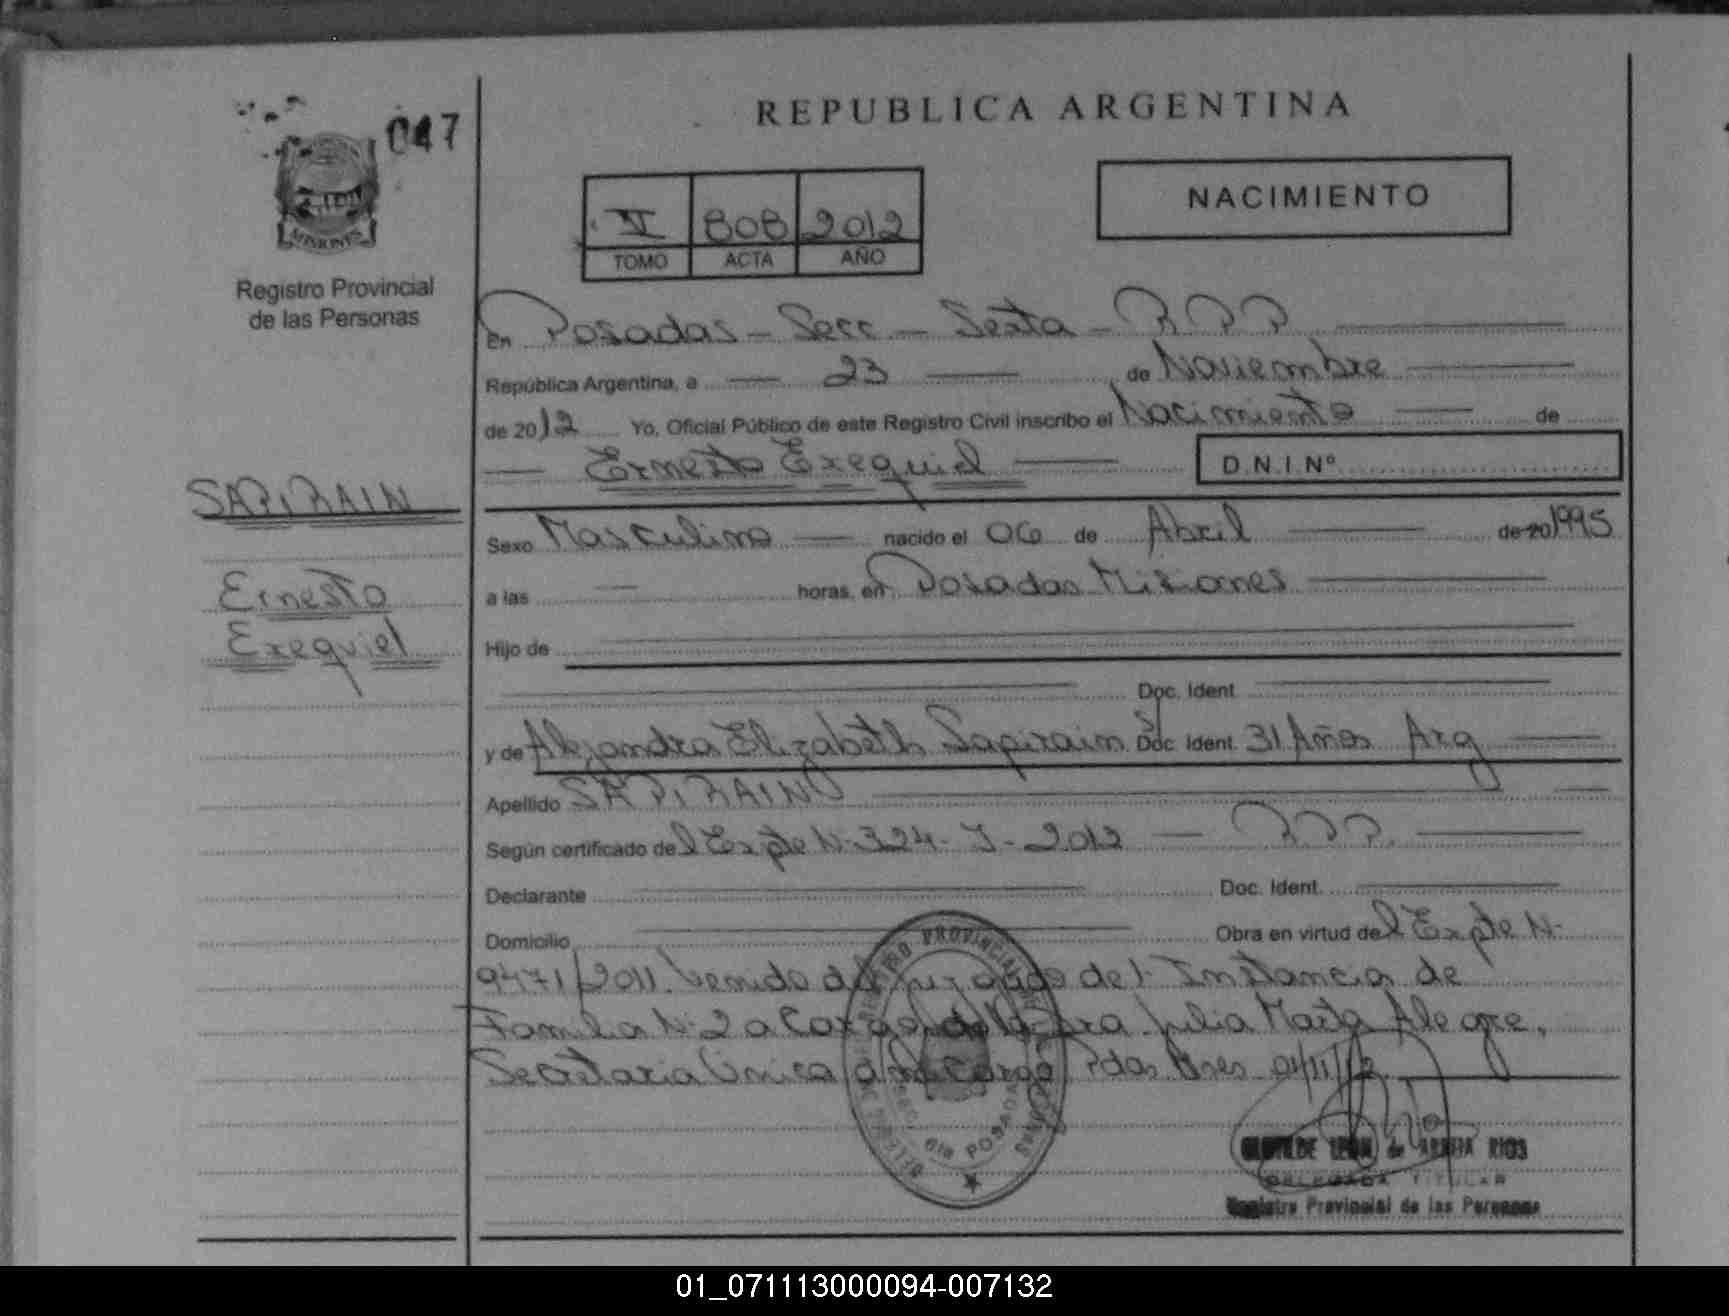 047
MISIONES
Registro Provincial
de las Personas
REPUBLICA ARGENTINA
VI 808 2012
TOMO ACTA AÑO
NACIMIENTO
En Posadas - Secc - Sexta - R.P.P.
República Argentina, a 23 de Noviembre
de 2012 Yo, Oficial Público de este Registro Civil inscribo el Nacimiento de
Ernesto Exequiel D.N.I.Nº
SAPIRAIN
Ernesto
Exequiel
Sexo Masculino nacido el 06 de Abril de 20 1995
a las horas, en Posadas Misiones
Hijo de
Doc. Ident
y de Alejandra Elizabeth Sapirain Doc. Ident. 31 Años Arg
Apellido SAPIRAIN
Según certificado del Expte N- 324- J - 2012 - R.P.P.
Declarante Doc. Ident.
Domicilio Obra en virtud del Expte N-
9471/2011. Venido del Juzgado de 1- Instancia de
Familia N-2 a Cargo de la Dra Julia Marta Alegre,
Secretaria Unica a mi Cargo Pdas Mnes 01/11/12
REGISTRO PROVINCIAL DE LAS PERSONAS
6ta POSADAS
CLOTILDE LEON de ARAUJA RIOS
DELEGADA TITULAR
Registro Provincial de las Personas
01_071113000094-007132